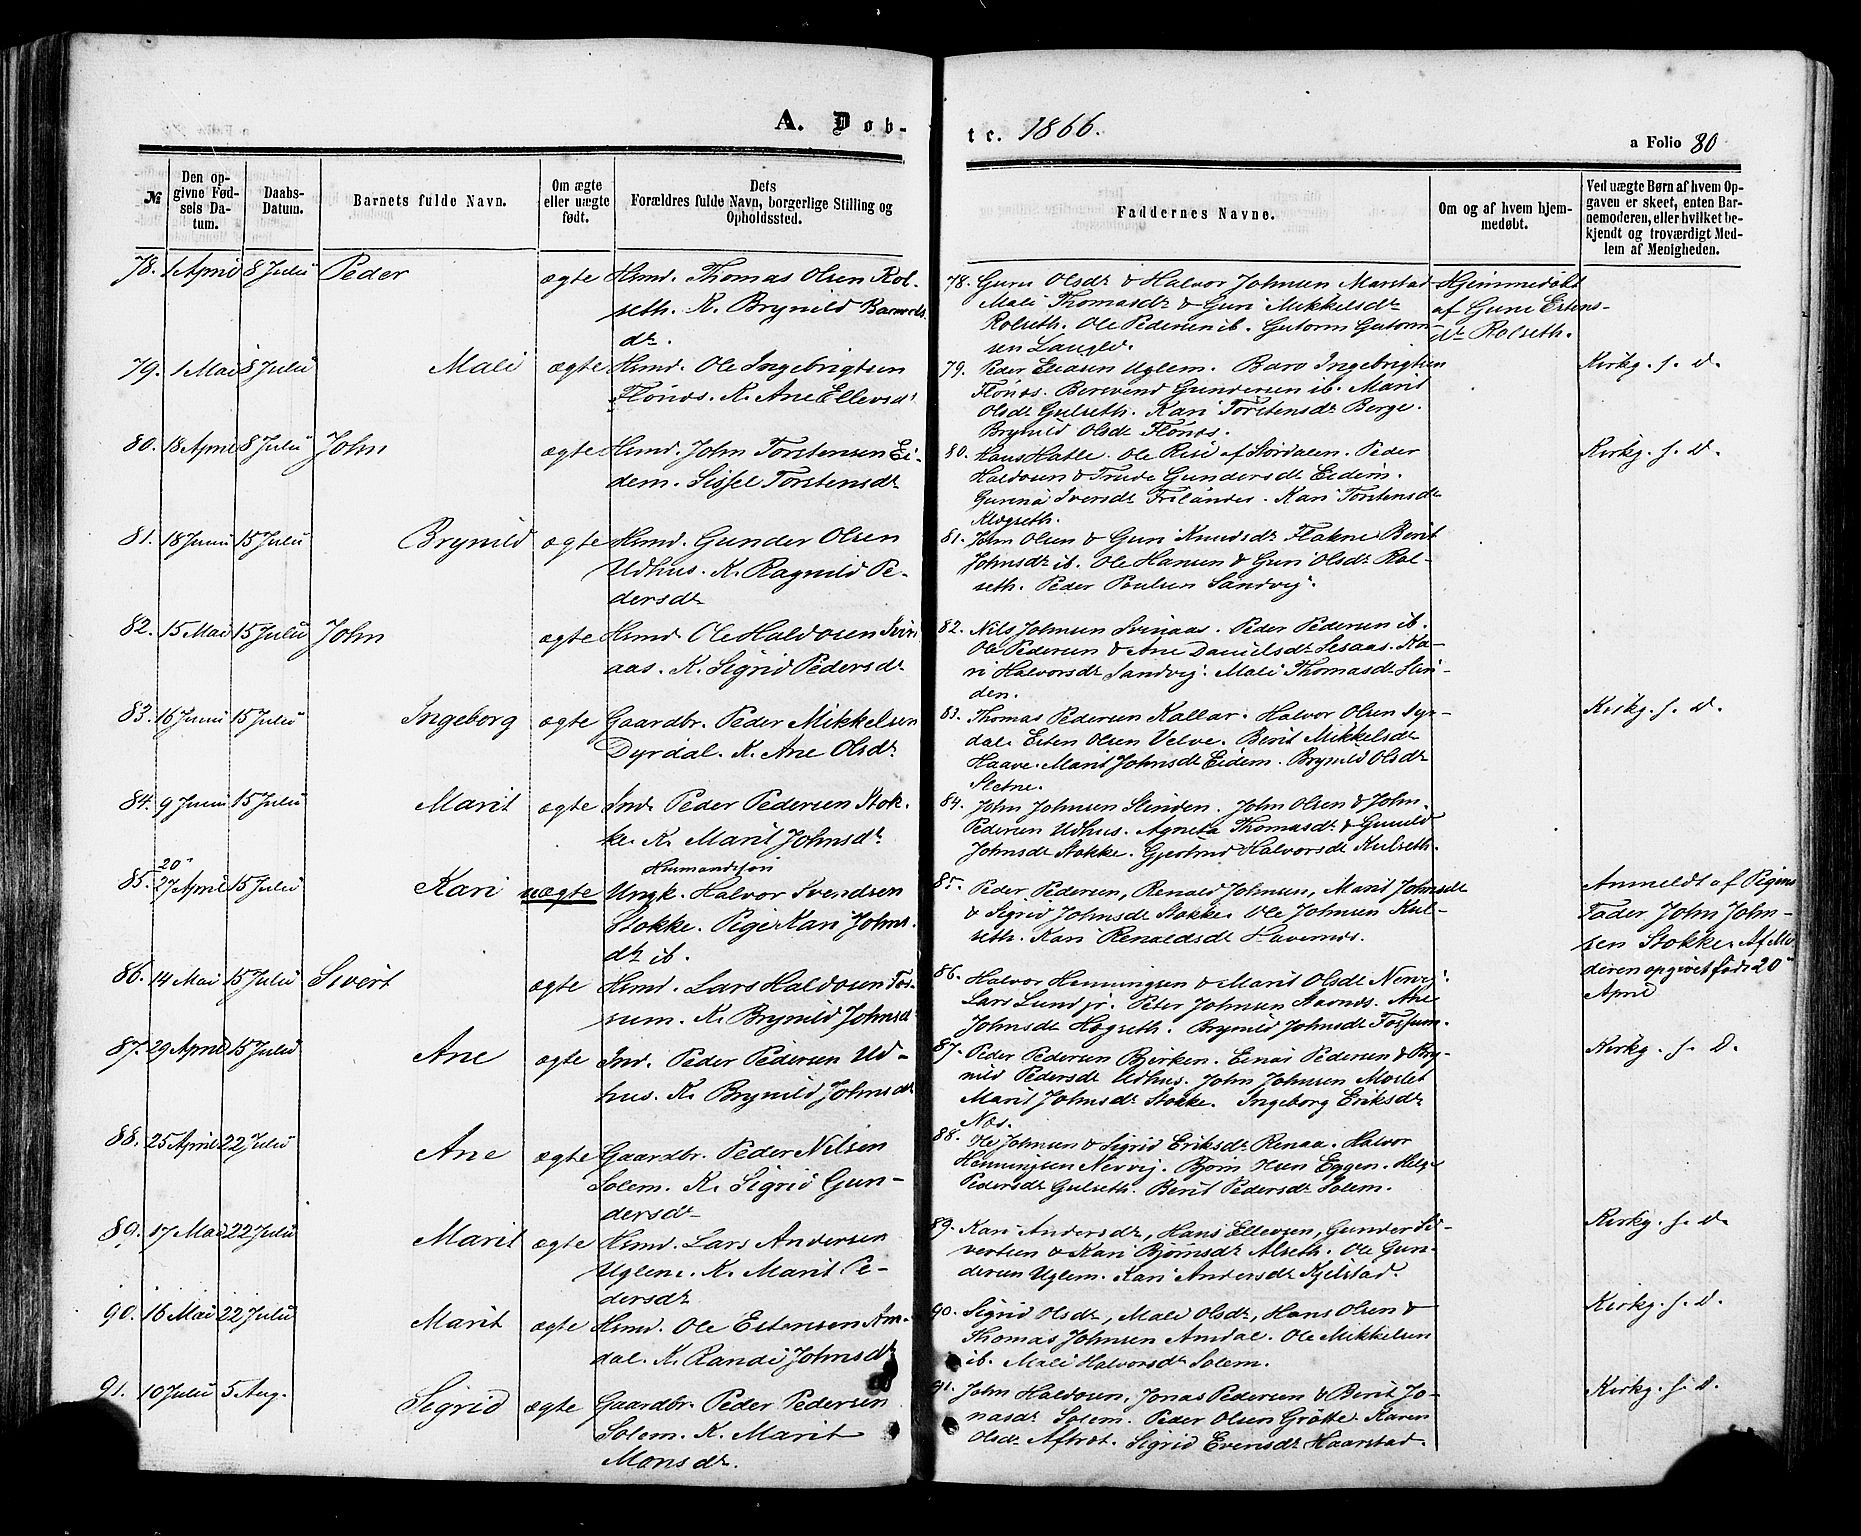 A. Døb-
te. 1866.
a Folio 80
№
Den op-
givne Fød-
sels Da-
tum.
Daabs-
Datum.
Barnets fulde Navn.
Om ægte
eller uægte
født.
Dets
Forældres fulde Navn, borgerlige Stilling og
Opholdssted.
Faddernes Navne.
Om og af hvem hjem-
medøbt.
Ved uægte Børn af hvem Op-
gaven er skeet, enten Bar-
nemoderen, eller hvilket be-
kjendt og troværdigt Med-
lem af Menigheden.
78. 1 April 8 Julii Peder ægte Hsmd. Thomas Olsen Rol-
seth. K. Brynild Barnvds
dr.
78. Guru Olsdr & Halvor Johnsen Marstad
Mali Thomasdr & Guri Mikkelsdr
Rolseth. Ole Pedersen ib. Gutorm Gutorm-
sen Langld.
Hjemmedøbt
af Gune Estens-
dr Rolseth.
79. 1 Mai 8 Julii Mali ægte Hsmd. Ole Ingebrigtsen
Flönæs. K. Ane Ellevsdr
79. Peder Eliasen Uglem. Baro Ingebrigtsen
Flönæs. Bervend Gundersen ib. Marit
Olsdr Gulseth. Kari Torstensdr Berge.
Brynild Olsdr Flönæs.
Kirkg. f. D.
80. 18 April 8 Julii John ægte Hsmd. John Torstensen Ei-
dem. Sissel Torstensdr
80. Hans Hatle. Ole Risé af Stördalen. Peder
Haldosen & Trude Gundersdr Eidem.
Gurina Iversdr Frslandes. Kari Torstensdr
Klegseth.
Kirkg. f. D.
81. 18 Junii 15 Julii Brynild ægte Hsmd. Gunder Olsen
Udhus. K. Ragnild Pe-
dersdr
81. John Olsen & Guri Knudsdr Flakne Berit
Johnsdr ib. Ole Hansen & Guri Olsdr Rol-
seth. Peder Poulsen Sandvij.
82. 15 Mai 15 Julii John ægte Hsmd. Ole Haldosen Svin-
aas. K. Sigrid Pedersdr
82. Nils Johnsen Svinaas. Peder Pedersen ib.
Ole Pedersen & Ane Danielsdr Sesaas. Ka-
ri Halvorsdr Sandvij. Mali Thomasdr Slin-
den.
83. 16 Junii 15 Julii Ingeborg ægte Gaardbr. Peder Mikkelsen
Dyrdal. K. Ane Olsdr
83. Thomas Pedersen Kallar. Halvor Olsen Dyr-
dal. Esten Olsen Velve. Berit Mikkelsdr
Haave. Marit Johnsdr Eidem. Brynild Olsdr
Sletne.
Kirkg. f. D.
84. 9 Junii 15 Julii Marit ægte Ind. Peder Pedersen Stok-
ke. K. Marit Johnsdr
84. John Johnsen Slinden. John Olsen & John
Pedersen Udhus. Agneta Thomasdr & Gunild
Johnsdr Stokke. Gjertrud Halvorsdr Kulseth.
20"
85. 27 April 15 Julii Kari uægte
Husmandssön
Ungk. Halvor Svendsen
Stokke. Pige Kari Johns-
dr ib.
85. Peder Pedersen, Renald Johnsen, Marit Johnsdr
& Sigrid Johnsdr Stokke. Ole Johnsen Kul-
seth. Kari Renaldsdr Havernæs.
Anmeldt af Pigens
Fader John John-
sen Stokke. Af Mo-
deren opgivet født 20"
April
86. 14 Mai 15 Julii Sivert ægte Hsmd. Lars Haldosen Fos-
sum. K. Brynild Johnsdr
86. Halvor Henningsen & Marit Olsdr Nervij.
Lars Lund jr. Peter Johnsen Aavnæs. Ane
Johnsdr Hogseth. Brynild Johnsdr Fossum.
87. 29 April 15 Julii Ane ægte Ind. Peder Pedersen Ud-
hus. K. Brynild Johnsdr
87. Peder Pedersen Bjerken. Einar Pedersen & Bry-
nild Pedersdr Udhus. John Johnsen Moslet
Marit Johnsdr Stokke. Ingeborg Eriksdr
Næs.
Kirkg. f. D.
88. 25 April 22 Julii Ane ægte Gaardbr. Peder Nilsen
Solem. K. Sigrid Gun-
dersdr
88. Ole Johnsen & Sigrid Eriksdr Renaa. Halvor
Henningsen Nervij. Bjørn Iversen Eggen. Helge
Pedersdr Gulseth. Berit Pedersdr Solem.
89. 17 Mai 22 Julii Marit ægte Hsmd. Lars Andersen
Uglem. K. Marit Pe-
dersdr
89. Kari Andersdr, Hans Ellevsen, Gunder Si-
vertsen & Kari Bjørnsdr Alseth. Ole Gun-
dersen Uglem. Kari Andersdr Kjelstad.
Kirkg. f. D.
90. 16 Mai 22 Julii Marit ægte Hsmd. Ole Estensen Am-
dal. K. Randi Johnsdr
90. Sigrid Olsdr, Mali Olsdr, Hans Olsen &
Thomas Johnsen Amdal. Ole Mikkelsen
ib. Mali Halvorsdr Solem.
Kirkg. f. D.
91. 10 Julii 5 Aug. Sigrid ægte Gaardbr. Peder Pedersen
Solem. K. Marit
Monsdr.
91. John Haldosen, Jonas Pedersen & Berit Jo-
nasdr Solem. Peder Olsen Grötte. Karen
Olsdr Aftrøt. Sigrid Evensdr Haarstad.
Kirkg. f. D.